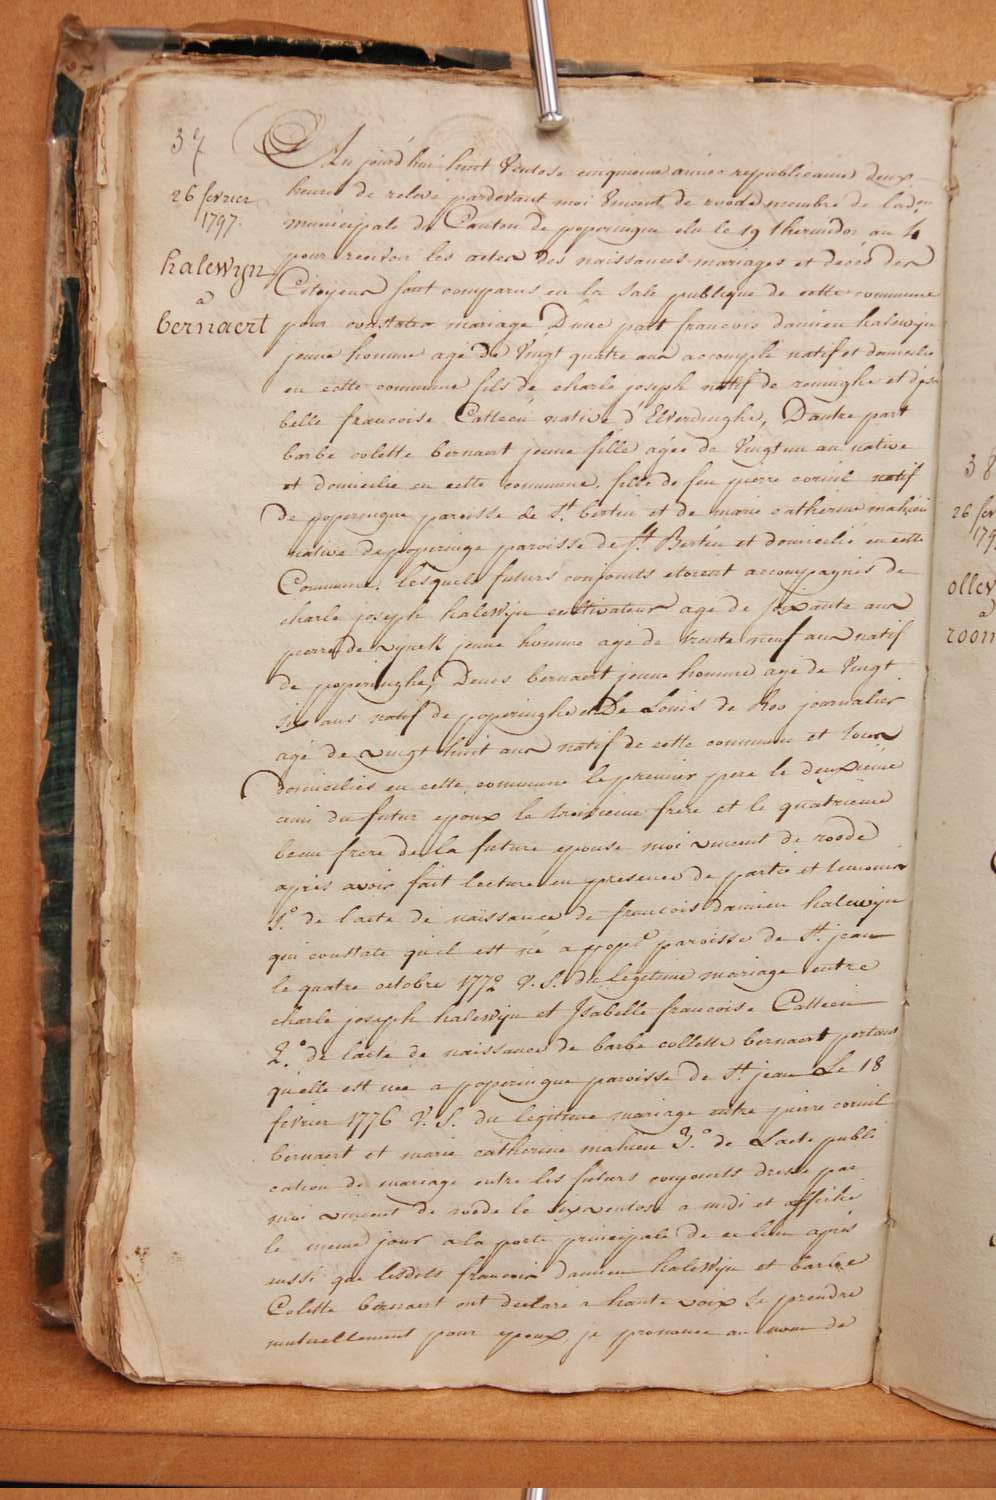 37
26 fevrier
1797.
halewyn
a
bernaert
Au jourd'hui huit Ventose cinquieme année republicaine deux
heures de relevé pardevant moi Vincent de roode membre de ladon
municipale du Canton de poperingue elu le 19 thermidor an 4
pour recevoir les actes des naissances mariages et décès des
Citoyens sont comparus en la sale publique de cette commune
pour constater mariage D'une part francois damien halewyn
jeune homme age de Vingt quatre ans accomplé natif et domicilié
en cette commune fils de charle joseph natif de reninghe et d'isa
belle francoise Catteeu native d'Elverdinghe, D'autre part
barbe colette bernaert jeune fille agée de Vingt un an native
et domicilie en cette commune. fille de feu pierre cornil natif
de poperingue paroisse de St. bertin et de marie catherine mahieu
native de poperinge paroisse de St. Bertin et domicilié en cette
Commune. lesquels futurs conjoints etoient accompagnés de
charle joseph halewyn cultivateur agé de soixante ans
pierre de wynck jeune homme age de trente neuf ans natif
de poperinghe, Denis bernaert jeune homme age de Vingt
six ans natif de poperinghe et De Louis de Roo journalier
agé de vingt huit ans natif de cette commune et tous
domiciliés en cette commune le premier pere le deuxieme
ami du futur epoux le troisieme frere et le quatrieme
beau frere de la future epouse moi vincent de roode
après avoir fait lecture en presence de partie et temoins
1.° de l'acte de naissance de francois damien halewyn
qui constate qu'il est né a pope paroisse de St. jean
le quatre octobre 1772 V. S. du legitime mariage entre
charle joseph halewyn et Isabelle francoise Catteeu
2.° de l'acte de naissance de barbe collette bernaert portant
qu'elle est née a poperingue paroisse de St. jean Le 18
fevrier 1776 V. S. du legitime mariage entre pierre cornil
bernaert et marie catherine mahieu 3.° de L'acte publi
cation de mariage entre les futurs conjoints dressé par
moi vincent de roode le six ventose a midi et affiché
le meme jour a la porte principale de ce lieu après
aussi que lesdits francois damien halewyn et barbe
Colette bernaert ont declaré a haute voix se prendre
mutuellement pour epoux, je prononce au nom de
38
26 fev
179
ollev
a
room